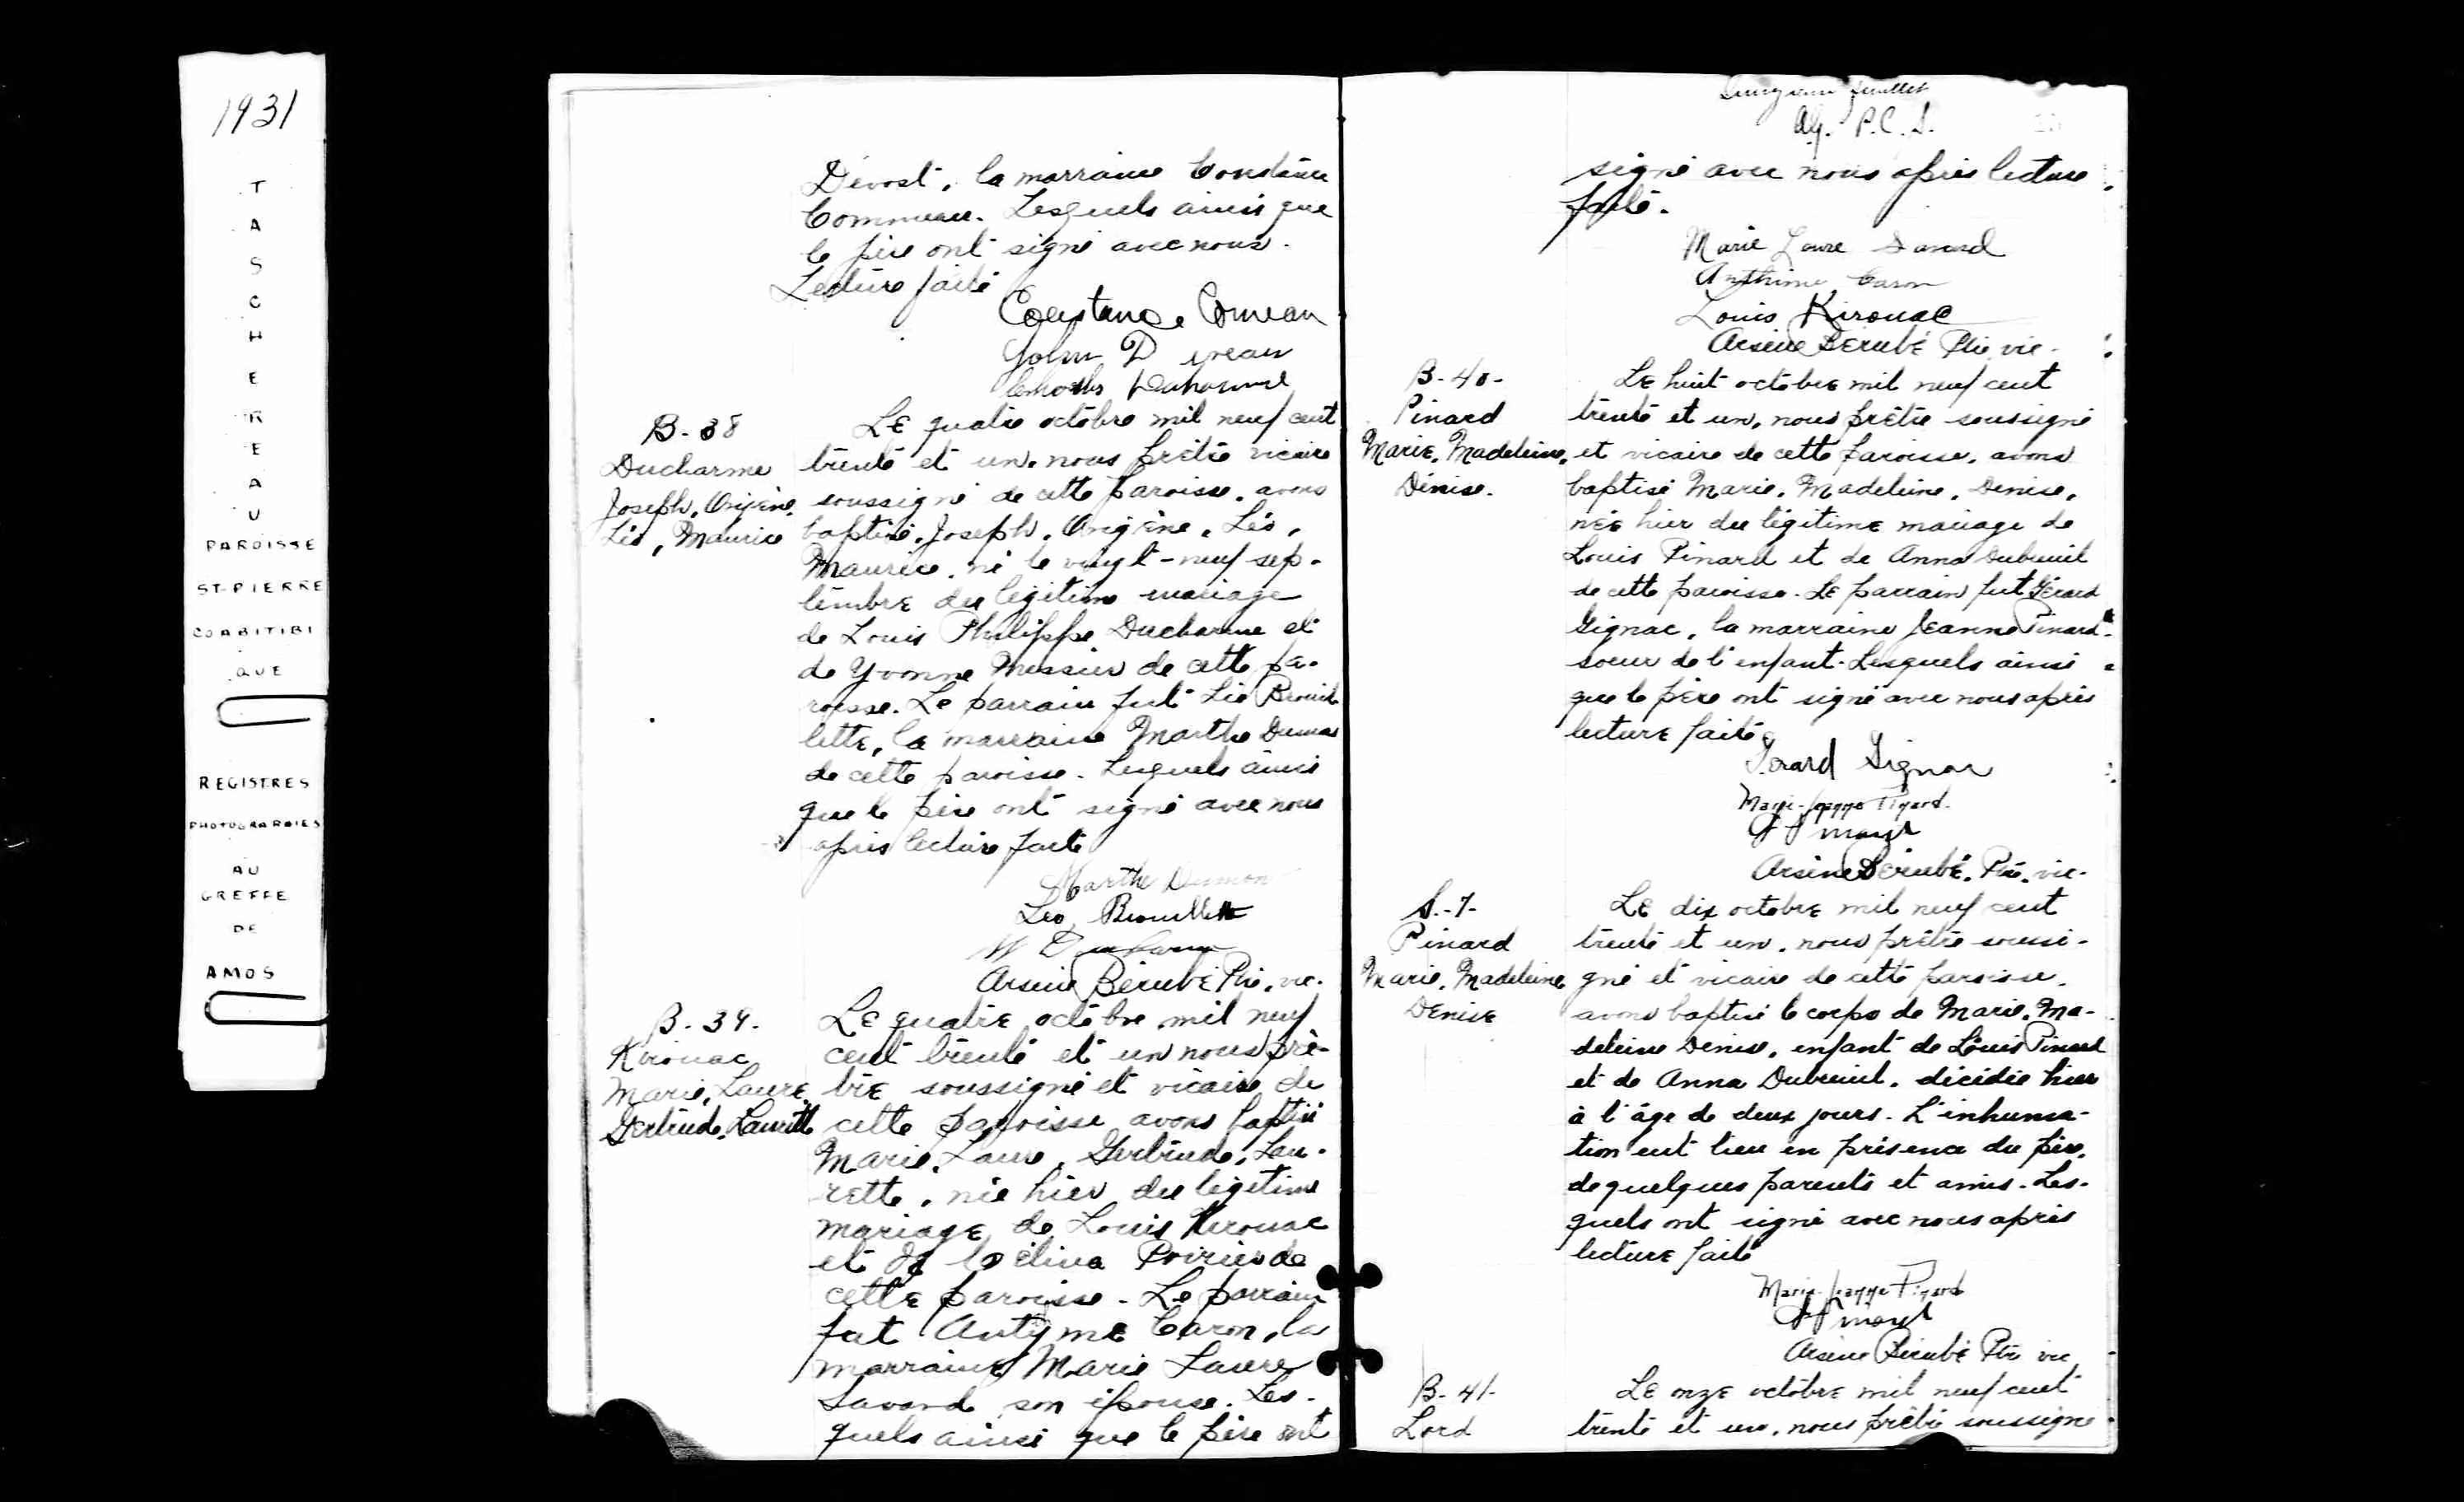 1931
TASCHEREAU
PAROISSE
ST-PIERRE
CO ABITIBI
QUE
REGISTRES
PHOTOGRAPHIES
AU
GREFFE
DE
AMOS
Dévost, la marraine Constance
Commeau. Lesquels ainsi que
le père ont signé avec nous.
Lecture faite
Constance Comeau
John D
B-38
Ducharme
Joseph, Origène,
Léo, Maurice
Le quatre octobre mil neuf cent
trente et un, nous prêtre vicaire
soussigné de cette paroisse, avons
baptisé, Joseph, Origène, Léo,
Maurice, né le vingt-neuf sep-
tembre du légitime mariage
de Louis Philippe Ducharme et
de Yvonne Messier de cette pa-
roisse. Le parrain fut Léo Brouil-
lette, la marraine Marthe Dumas
de cette paroisse. Lesquels ainsi
que le père ont signé avec nous
après lecture faite
Marthe Dumon
Leo Brouillette
Arsène Bérubé Ptre, vic.
B-39.
Kirouac
Marie, Laure,
Gertrude, Laurette
Le quatre octobre mil neuf
cent trente et un nous prê-
tre soussigné et vicaire de
cette paroisse avons baptisé
Marie, Laure, Gertrude, Lau-
rette, née hier du légitime
mariage de Louis Kirouac
et de Célina Poirier de
cette paroisse. Le parrain
fut Antyme Caron, la
marraine Marie Laure
Savard son épouse. Les-
quels ainsi que le père ont
feuillet
P.C.S.
signé avec nous après lecture
faite.
Marie Laure Savard
Anthime Caron
Louis Kirouac
Arsène Bérubé Ptre vic.
B-40-
Pinard
Marie, Madeleine,
Denise.
Le huit octobre mil neuf cent
trente et un, nous prêtre soussigné
et vicaire de cette paroisse, avons
baptisé Marie, Madeleine, Denise,
née hier du légitime mariage de
Louis Pinard et de Anna Dubreuil
de cette paroisse. Le parrain fut Gérard
Gignac, la marraine Jeanne Pinard
soeur de l'enfant. Lesquels ainsi
que le père ont signé avec nous après
lecture faite
Gerard Gignac
Marie-Jeanne Pinard.
Arsène Bérubé, Ptre, vic.
S.-7-
Pinard
Marie, Madeleine
Denise
Le dix octobre mil neuf cent
trente et un, nous prêtre soussi-
gné et vicaire de cette paroisse,
avons baptisé le corps de Marie, Ma-
deleine Denise, enfant de Louis Pinard
et de Anna Dubreuil, décédée hier
à l'âge de deux jours. L'inhuma-
tion eut lieu en présence du père,
de quelques parents et amis. Les-
quels ont signé avec nous après
lecture faite
Marie-Jeanne Pinard
Arsène Bérubé Ptre vic
B-41-
Lord
Le onze octobre mil neuf cent
trente et un, nous prêtre soussigné